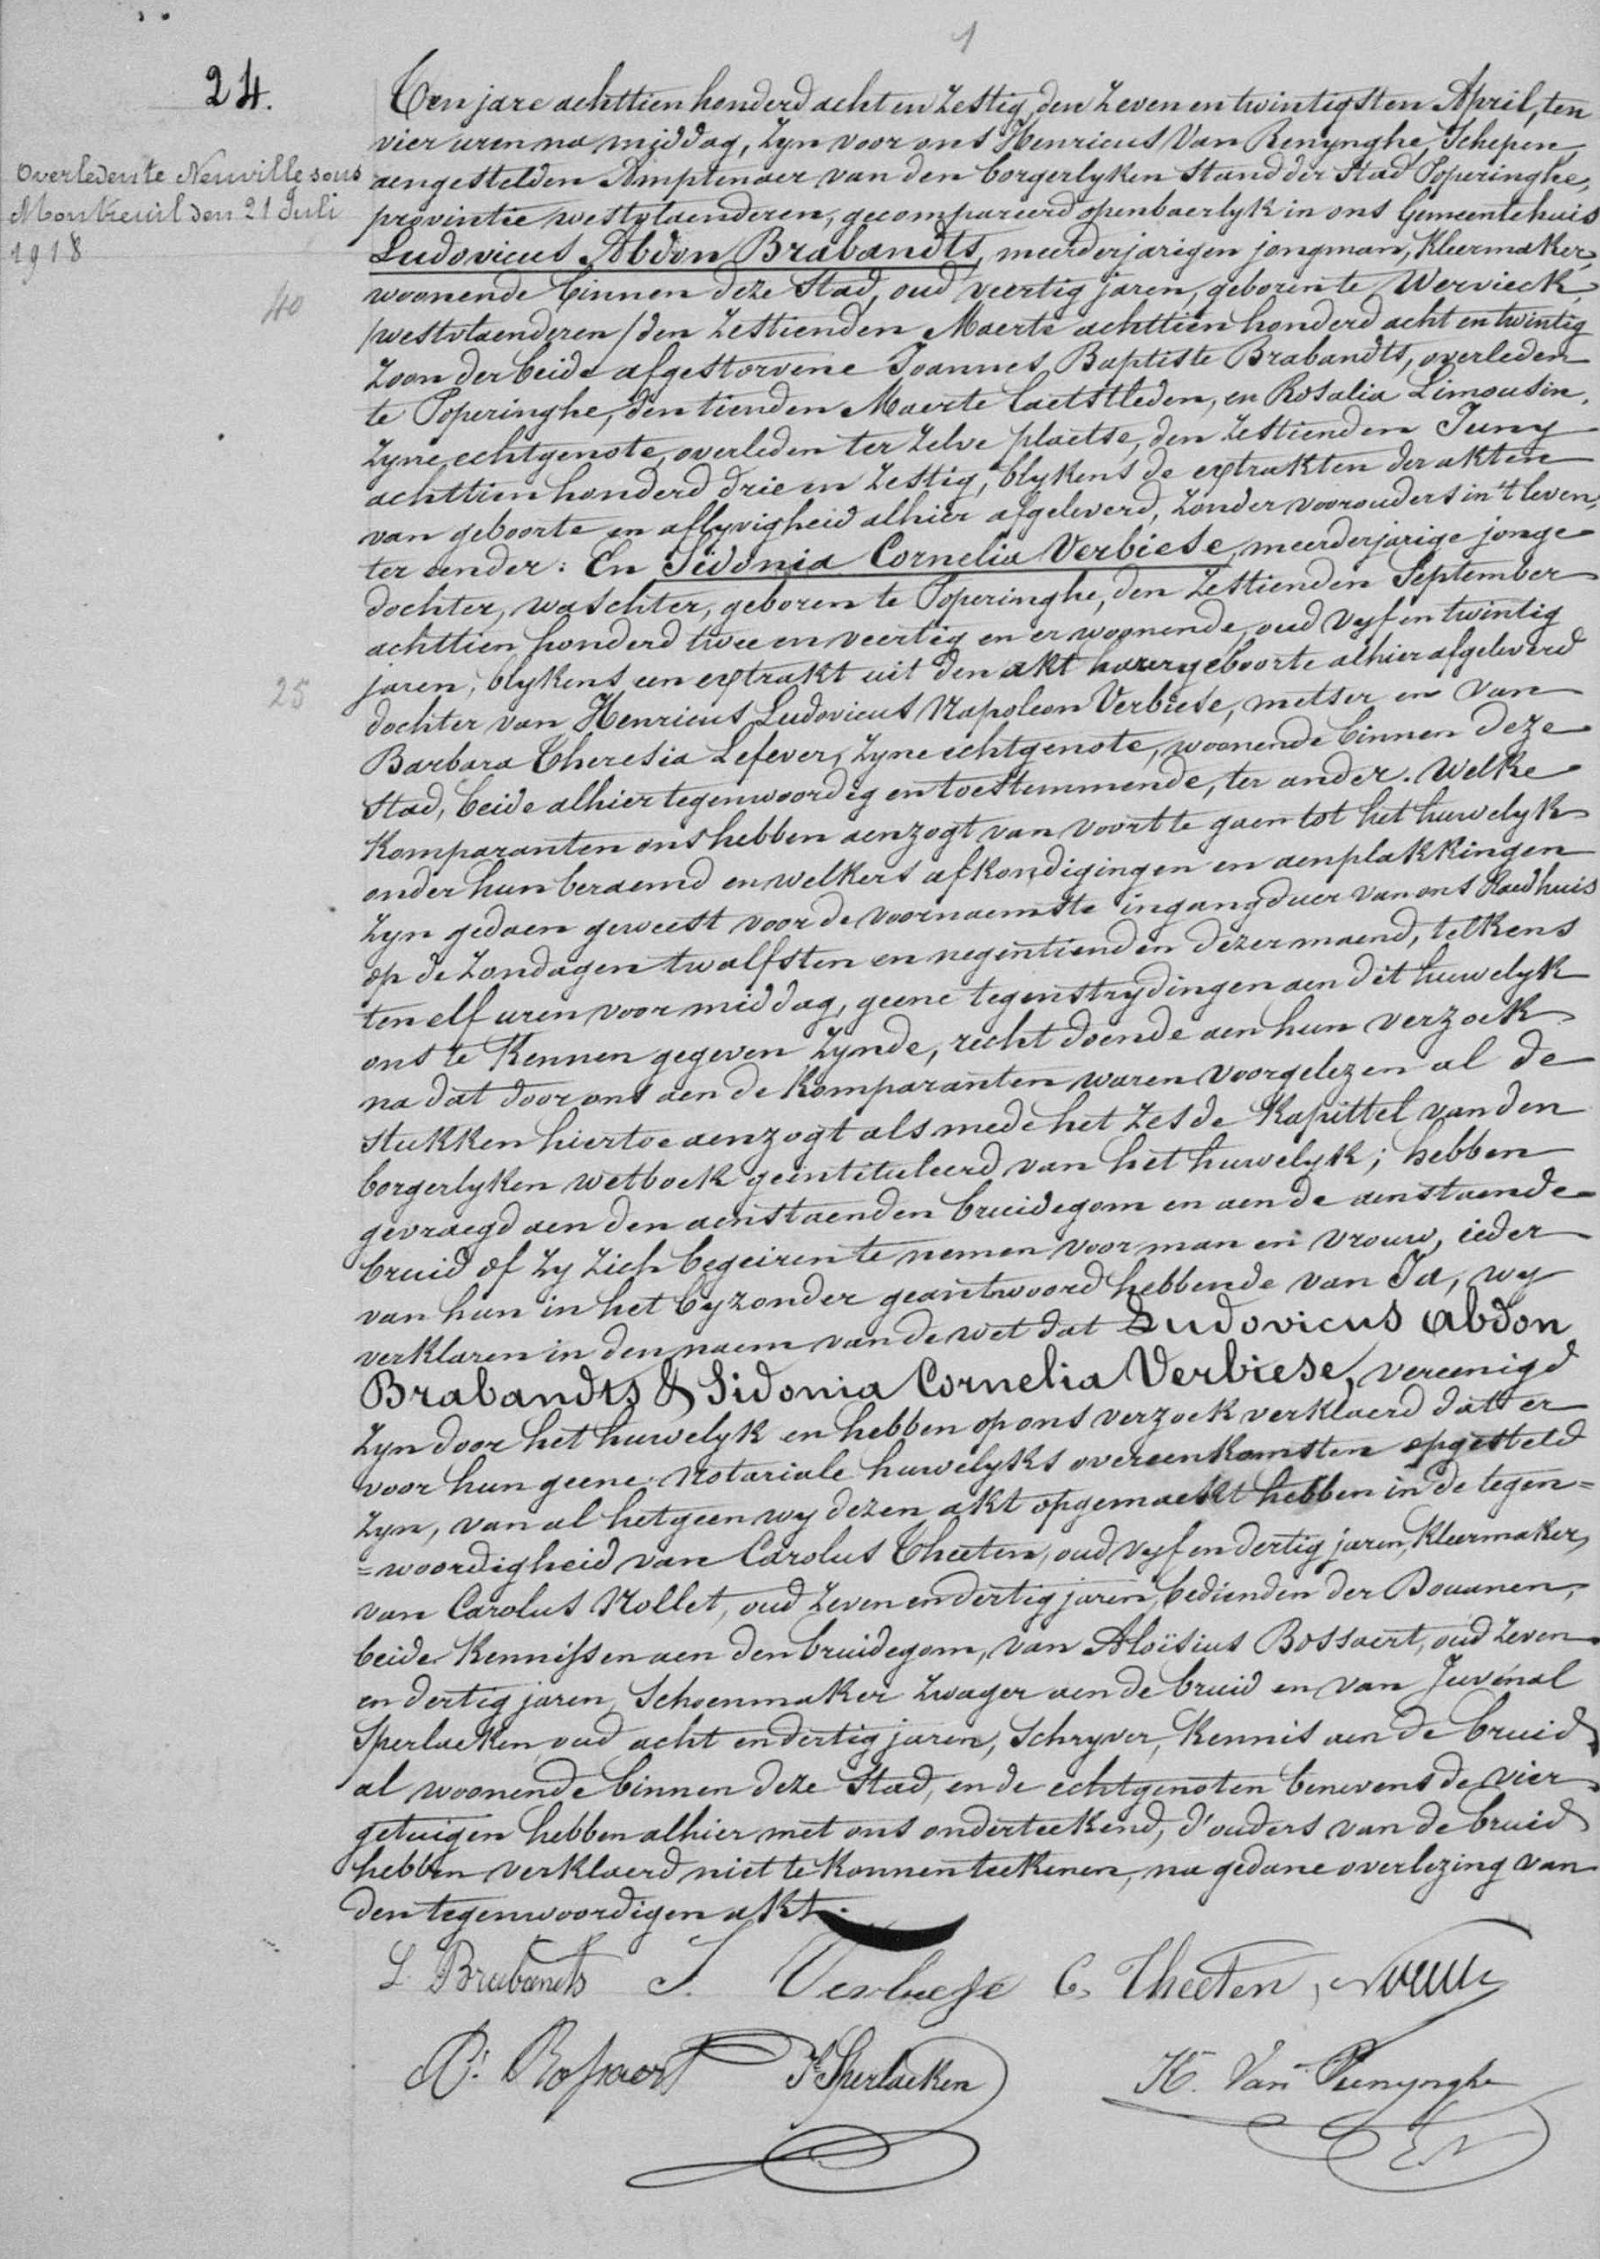 1
24.
Overleden te Neuville sous
Montreuil den 21 Juli
1918
40
25
Ten jare achttien honderd acht en zestig, den zeven en twintigsten April, ten
vier uren na middag, zyn voor ons Henricus Van Renynghe, Schepen,
aengestelden Amptenaer van den borgerlyken Stand der Stad Poperinghe,
provintie westvlaenderen, gecompareerd openbaerlyk in ons Gemeentehuis
Ludovicus Abdon Brabandts, meerderjarigen jongman, Kleermaker,
woonende binnen deze Stad, oud veertig jaren, geboren te Wervieck
/westvlaenderen/ den zestienden Maerte achttien honderd acht en twintig
Zoon der beide afgestorvene Joannes Baptiste Brabandts, overleden
te Poperinghe, den tienden Maerte laetstleden, en Rosalia Limousin,
zyne echtgenote, overleden ter zelve plaetse, den zestienden Juny
achttien honderd drie en zestig, blykens de extrakten der akten
van geboorte en aflyvigheid alhier afgeleverd, zonder voorouders in 't leven,
ter eender: En Sidonia Cornelia Verbiese, meerderjarige jonge
dochter, waschter, geboren te Poperinghe, den zestienden September
achttien honderd twee en veertig en er woonende, oud vyf en twintig
jaren, blykens een extrakt uit den akt harer geboorte alhier afgeleverd
dochter van Henricus Ludovicus Napoleon Verbiese, metser en van
Barbara Theresia Lefever, zyne echtgenote, woonende binnen deze
Stad, beide alhier tegenwoordig en toestemmende, ter ander. Welke
Komparanten ons hebben aenzogt van voort te gaen tot het huwelyk
onder hun beraemd en welkers afkondigingen en aenplakkingen
zyn gedaen geweest voor de voornaemste ingangduer van ons Raedhuis
op de zondagen twalfsten en negentienden dezer maend, telkens
ten elf uren voor middag, geene tegenstrydingen aen dit huwelyk
ons te Kennen gegeven zynde, recht doende aen hun verzoek
na dat door ons aen de Komparanten waren voorgelezen al de
stukken hiertoe aenzogt als mede het zesde Kapittel van den
borgerlyken wetboek geintituleerd van het huwelyk; hebben
gevraegd aen den aenstaenden bruidegom en aen de aenstaende
bruid of zy zich begeiren te nemen voor man en vrouw, ieder
van hun in het byzonder geantwoord hebbende van Ja, wy
verklaren in den naem van de wet dat Ludovicus Abdon
Brabandts & Sidonia Cornelia Verbiese, vereenigd
zyn door het huwelyk en hebben op ons verzoek verklaerd datter
voor hun geene Notariale huwelyks overeenkomsten opgesteld
zyn, van al hetgeen wy dezen akt opgemaekt hebben in de tegen=
=woordigheid van Carolus Theeten, oud vyf en dertig jaren, Kleermaker,
van Carolus Nollet, oud zeven en dertig jaren, bedienden der Douanen,
beide Kennissen aen den bruidegom, van Aloïsius Bossaert, oud zeven
en dertig jaren, Schoenmaker zwager aen de bruid en van Juvénal
Sperlaeken, oud acht en dertig jaren, Schryver, Kennis aen de bruid
al woonende binnen deze Stad, en de echtgenoten benevens de vier
getuigen hebben alhier met ons onderteekend, d'ouders van de bruid
hebben verklaerd niet te Konnen teekenen, na gedane overlezing van
den tegenwoordigen akt.
L. Brabandts S. Verbiese C. Theeten, Nollet
A. Bossaert J. Sperlaeken H. Van Renynghe